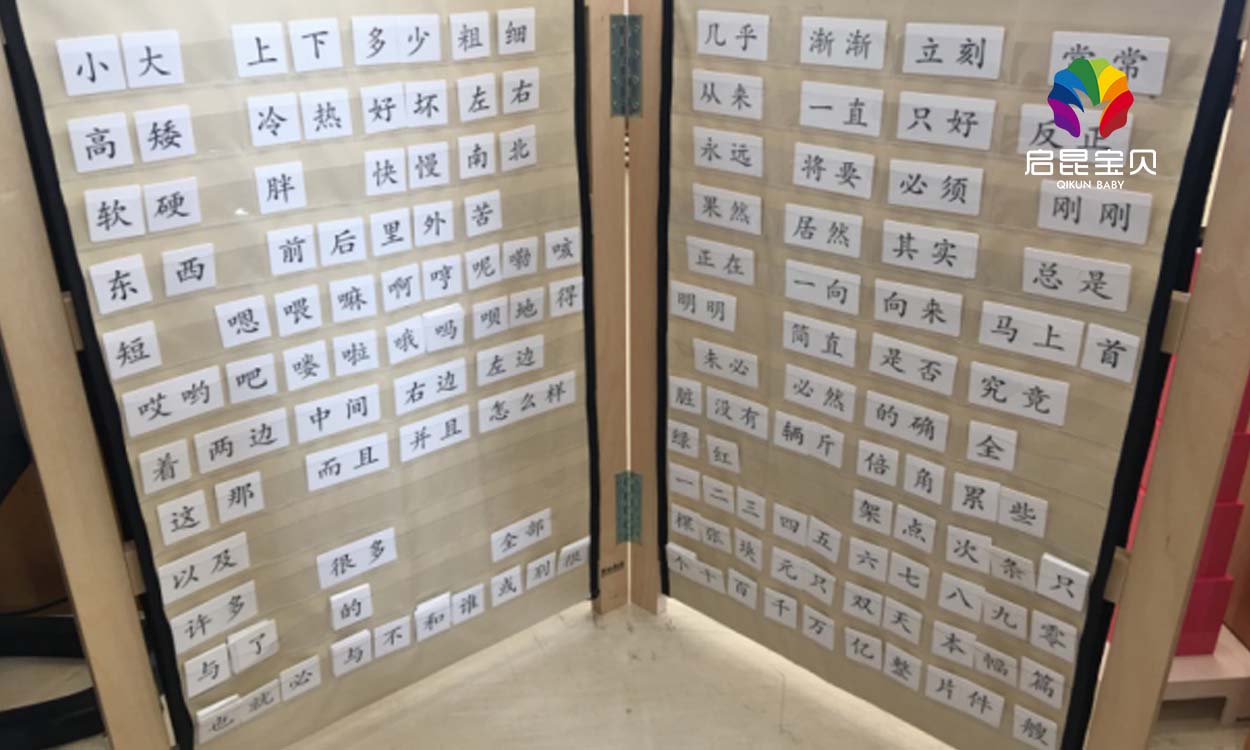 小 大 上 下 多 少 粗 细
高 矮 冷 热 好 坏 左 右
软 硬 胖 快 慢 南 北
东 西 前 后 里 外 苦
短 嗯 喂 嘛 啊 哼 呢 嘞 咳
哎哟 吧 喽 啦 哦 吗 呗 地 得
着 两边 中间 右边 左边
这 那 而且 并且 怎么样
以及 很多 全部
许多 的
与 了 与 不 和 谁 或 别 很
也 就 必
几乎 渐渐 立刻 常常
从来 一直 只好 反正
永远 将要 必须 刚刚
果然 居然 其实 总是
正在 一向 向来 马上 首
明明 简直 是否 究竟
未必 必然 的确 全
脏 没有 辆 斤 倍 角 累 些
绿 红 架 点 次 条 只
一 二 三 四 五 六 七 八 九 零
棵 张 块 元 只 双 天 本 幅 篇
个 十 百 千 万 亿 整 片 件 艘
启昆宝贝
QIKUN BABY